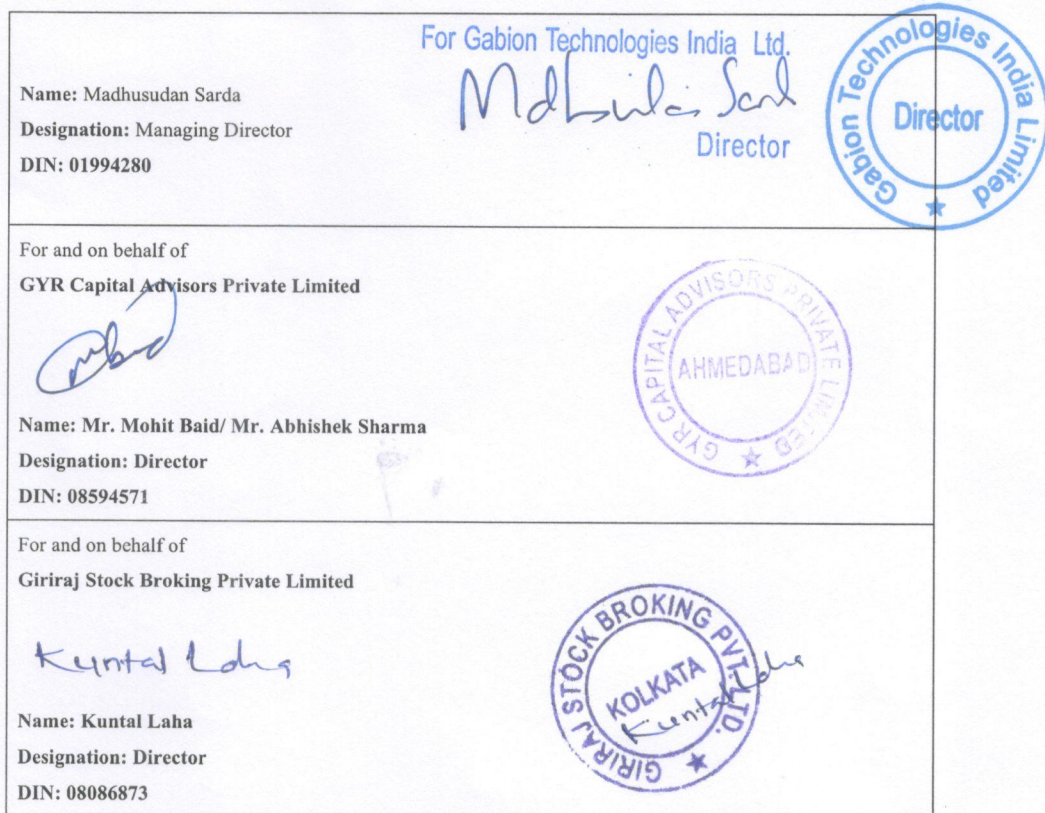 For Gabion Technologies India Ltd.
Name: Madhusudan Sarda
Designation: Managing Director
DIN: 01994280
Director
Gabion Technologies India Limited
Director
For and on behalf of
GYR Capital Advisors Private Limited
GYR CAPITAL ADVISORS PRIVATE LIMITED
AHMEDABAD
Name: Mr. Mohit Baid/ Mr. Abhishek Sharma
Designation: Director
DIN: 08594571
For and on behalf of
Giriraj Stock Broking Private Limited
Kuntal Laha
GIRIRAJ STOCK BROKING PVT. LTD.
KOLKATA
Kuntal Laha
Name: Kuntal Laha
Designation: Director
DIN: 08086873